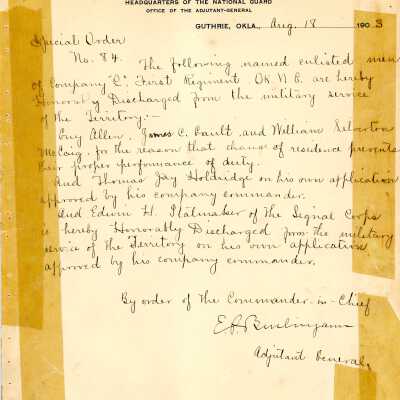 HEADQUARTERS OF THE NATIONAL GUARD
OFFICE OF THE ADJUTANT-GENERAL
GUTHRIE, OKLA., Aug. 18 1903
Special Order
No. 84. The following named enlisted men
of Company "L" First Regiment Ok. N. G. are hereby
Honorably Discharged from the military service
of the Territory:—
Guy Allen, James C. and William
McCaig, for the reason that change of residence prevents
their proper performance of duty.
And Thomas Jay Holdridge on his own application
approved by his company commander.
And Edwin H. Stalmaker of the Signal Corps
is hereby Honorably Discharged from the military
service of the Territory on his own application
approved by his company commander.
By order of the Commander-in-Chief
Burlingame
Adjutant General.